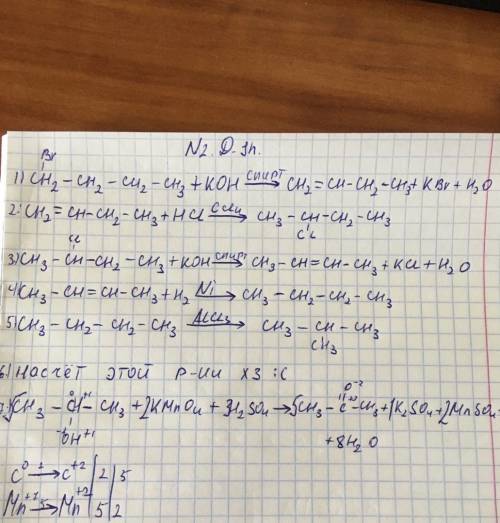 N2. D. Зn.
Br
1) CH2 – CH2 – CH2 – CH3 + KOH спирт→ CH2 = CH – CH2 – CH3 + KBr + H2O
2. CH2 = CH – CH2 – CH3 + HCl → CH3 – CH – CH2 – CH3
Cl
Cl
3) CH3 – CH – CH2 – CH3 + KOH спирт→ CH3 – CH = CH – CH3 + KCl + H2O
4) CH3 – CH = CH – CH3 + H2 Ni→ CH3 – CH2 – CH2 – CH3
5) CH3 – CH2 – CH2 – CH3 AlCl3→ CH3 – CH – CH3
CH3
6) Насчёт этой р-ии хз :C
O-2
7) 5CH3 – CH – CH3 + 2KMnO4 + 3H2SO4 → 5CH3 – C – CH3 + 1K2SO4 + 2MnSO4 +
OH+1
+ 8H2O
C0 2→ C+2 | 2 | 5
Mn+7 5→ Mn+2 | 5 | 2